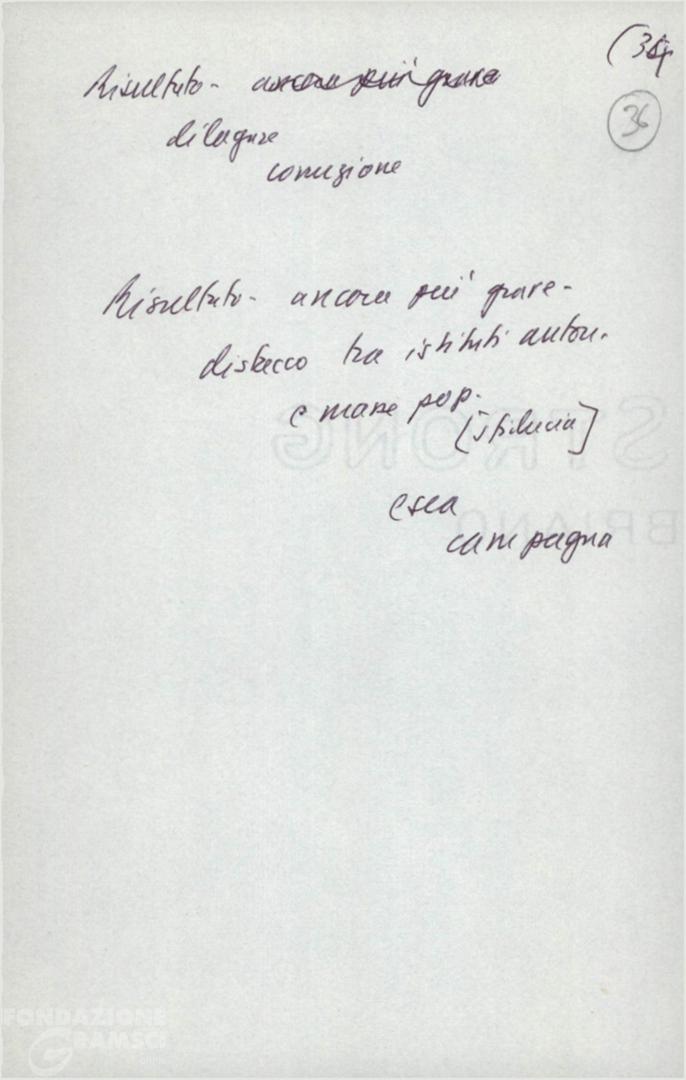 (36
36
Risultato - ancora più grave
dilagare
corruzione
Risultato - ancora più grave -
distacco tra istituti auton.
e masse pop.
[sfiducia]
esca
campagna
STRONG
BRIANO
FONDAZIONE
GRAMSCI